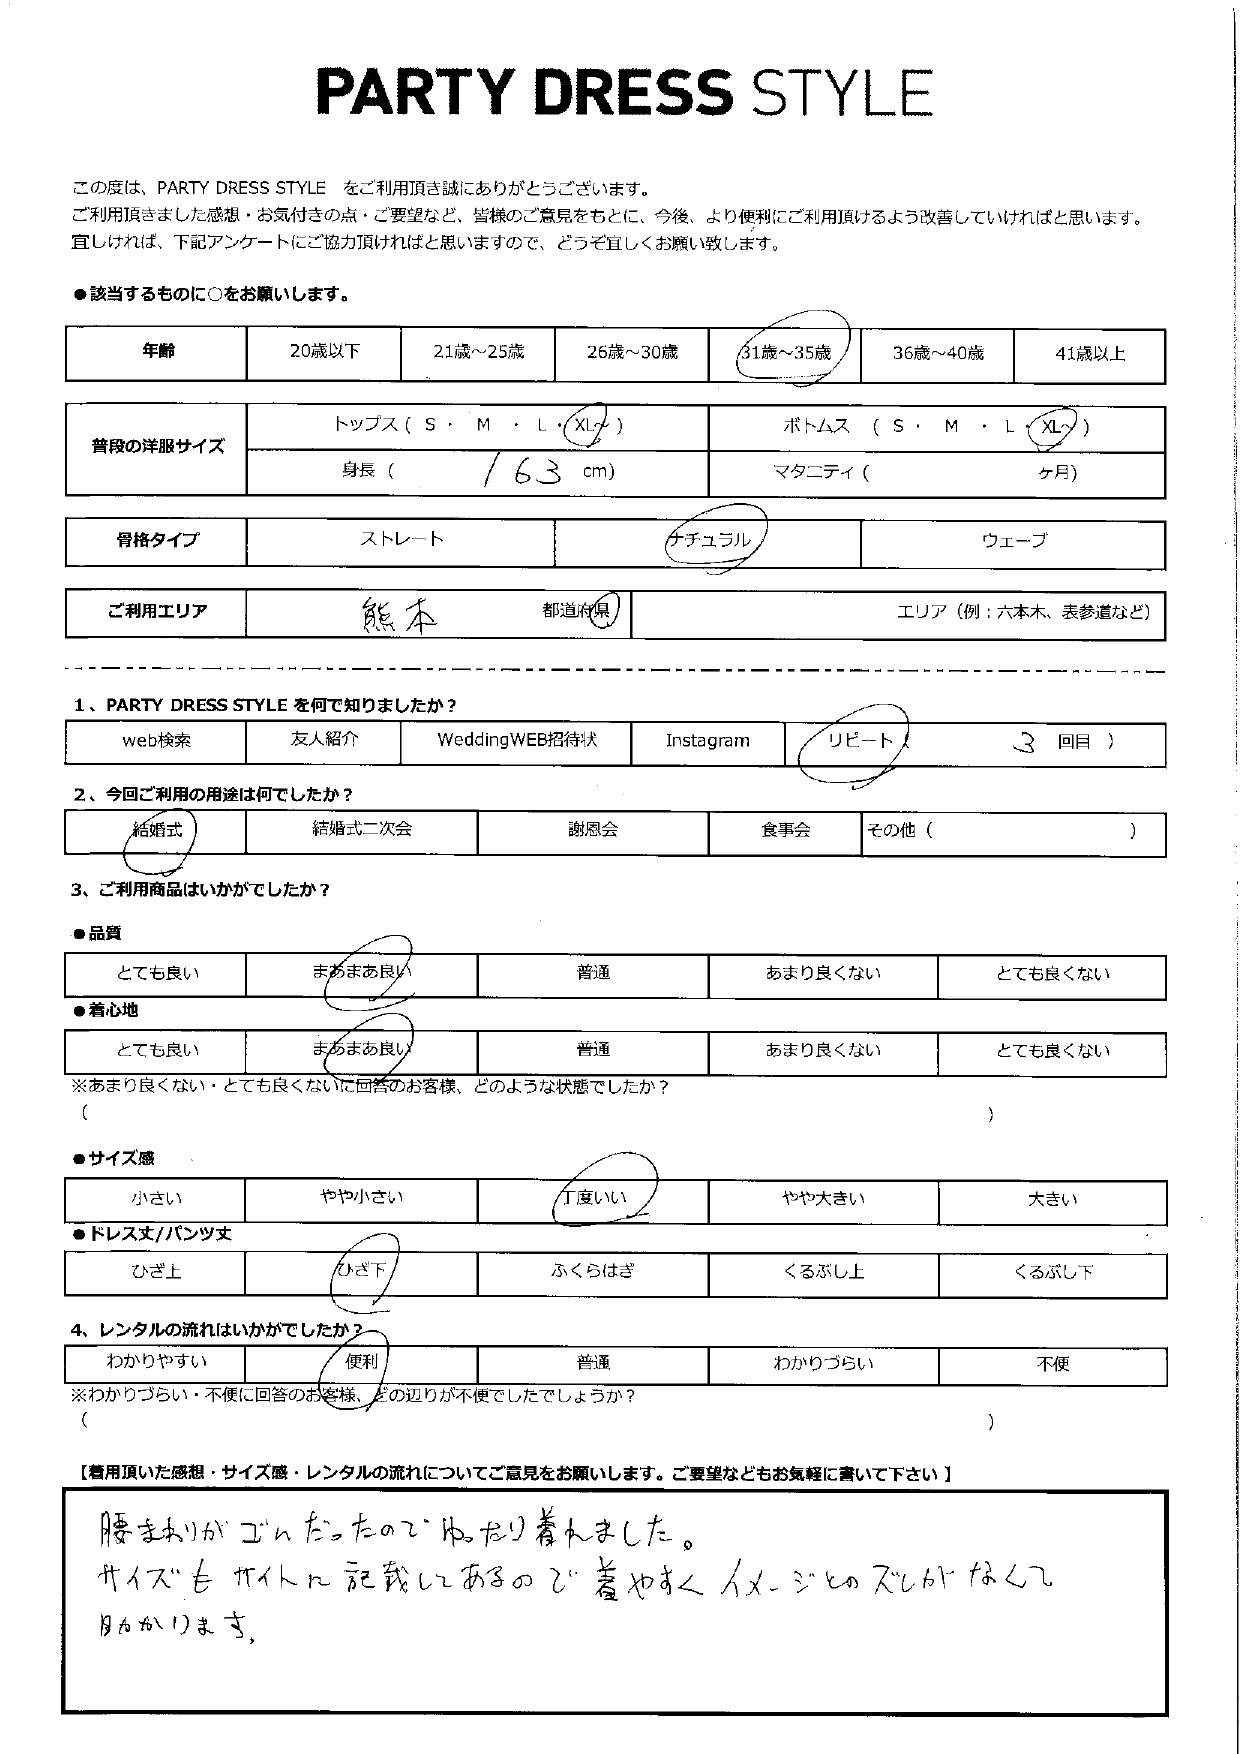 PARTY DRESS STYLE
この度は、PARTY DRESS STYLE をご利用頂き誠にありがとうございます。
ご利用頂きました感想・お気付きの点・ご要望など、皆様のご意見をもとに、今後、より便利にご利用頂けるよう改善していければと思います。
宜しければ、下記アンケートにご協力頂ければと思いますので、どうぞ宜しくお願い致します。
●該当するものに○をお願いします。
年齢 20歳以下 21歳～25歳 26歳～30歳 31歳～35歳 36歳～40歳 41歳以上
普段の洋服サイズ トップス ( S ・ M ・ L ・ XL~ ) ボトムス ( S ・ M ・ L ・ XL~ )
身長 ( 163 cm) マタニティ ( ヶ月)
骨格タイプ ストレート ナチュラル ウェーブ
ご利用エリア 熊本 都道府県 エリア（例：六本木、表参道など）
1、PARTY DRESS STYLE を何で知りましたか？
web検索 友人紹介 WeddingWEB招待状 Instagram リピート ( 3 回目 )
2、今回ご利用の用途は何でしたか？
結婚式 結婚式二次会 謝恩会 食事会 その他 ( )
3、ご利用商品はいかがでしたか？
●品質
とても良い まあまあ良い 普通 あまり良くない とても良くない
●着心地
とても良い まあまあ良い 普通 あまり良くない とても良くない
※あまり良くない・とても良くないに回答のお客様、どのような状態でしたか？
( )
●サイズ感
小さい やや小さい 丁度いい やや大きい 大きい
●ドレス丈/パンツ丈
ひざ上 ひざ下 ふくらはぎ くるぶし上 くるぶし下
4、レンタルの流れはいかがでしたか？
わかりやすい 便利 普通 わかりづらい 不便
※わかりづらい・不便に回答のお客様、どの辺りが不便でしたでしょうか？
( )
【着用頂いた感想・サイズ感・レンタルの流れについてご意見をお願いします。ご要望などもお気軽に書いて下さい】
腰まわりがゴムだったのでゆったり着れました。
サイズもサイトに記載してあるので着やすくイメージとのズレがなくて
助かります。